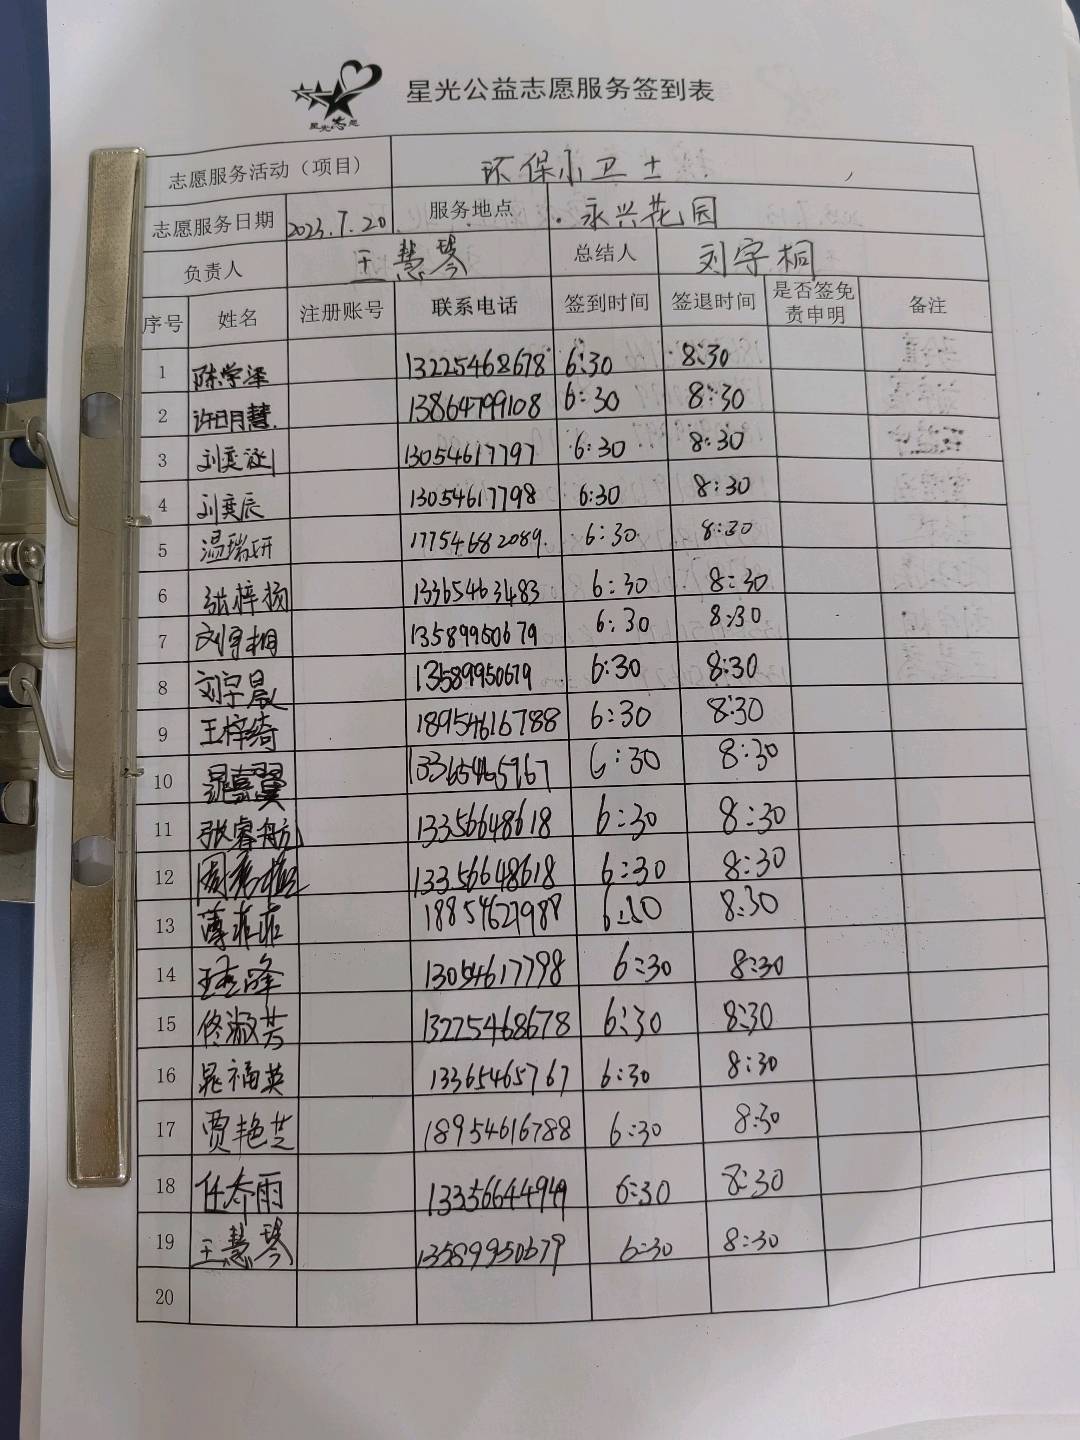 星光志愿
星光公益志愿服务签到表
志愿服务活动（项目） 环保小卫士
志愿服务日期 2023.7.20 服务地点 永兴花园
负责人 王慧琴 总结人 刘宇桐
序号 姓名 注册账号 联系电话 签到时间 签退时间 是否签免责申明 备注
1 陈学泽 13225468678 6:30 8:30
2 许明慧 13864799108 6:30 8:30
3 刘奕 13054617797 6:30 8:30
4 刘奕辰 13054617798 6:30 8:30
5 温瑞妍 17754682089 6:30 8:30
6 张梓扬 13365463483 6:30 8:30
7 刘宇桐 13589950679 6:30 8:30
8 刘宇晨 13589950679 6:30 8:30
9 王梓绮 18954616788 6:30 8:30
10 晁嘉翼 6:30 8:30
11 张睿航 13356648618 6:30 8:30
12 13356648618 6:30 8:30
13 薄菲菲 18854627988 6:30 8:30
14 13054617798 6:30 8:30
15 佟淑芳 13225468678 6:30 8:30
16 晁福英 13365465767 6:30 8:30
17 贾艳芝 18954616788 6:30 8:30
18 任春雨 13356644949 6:30 8:30
19 王慧琴 13589950679 6:30 8:30
20